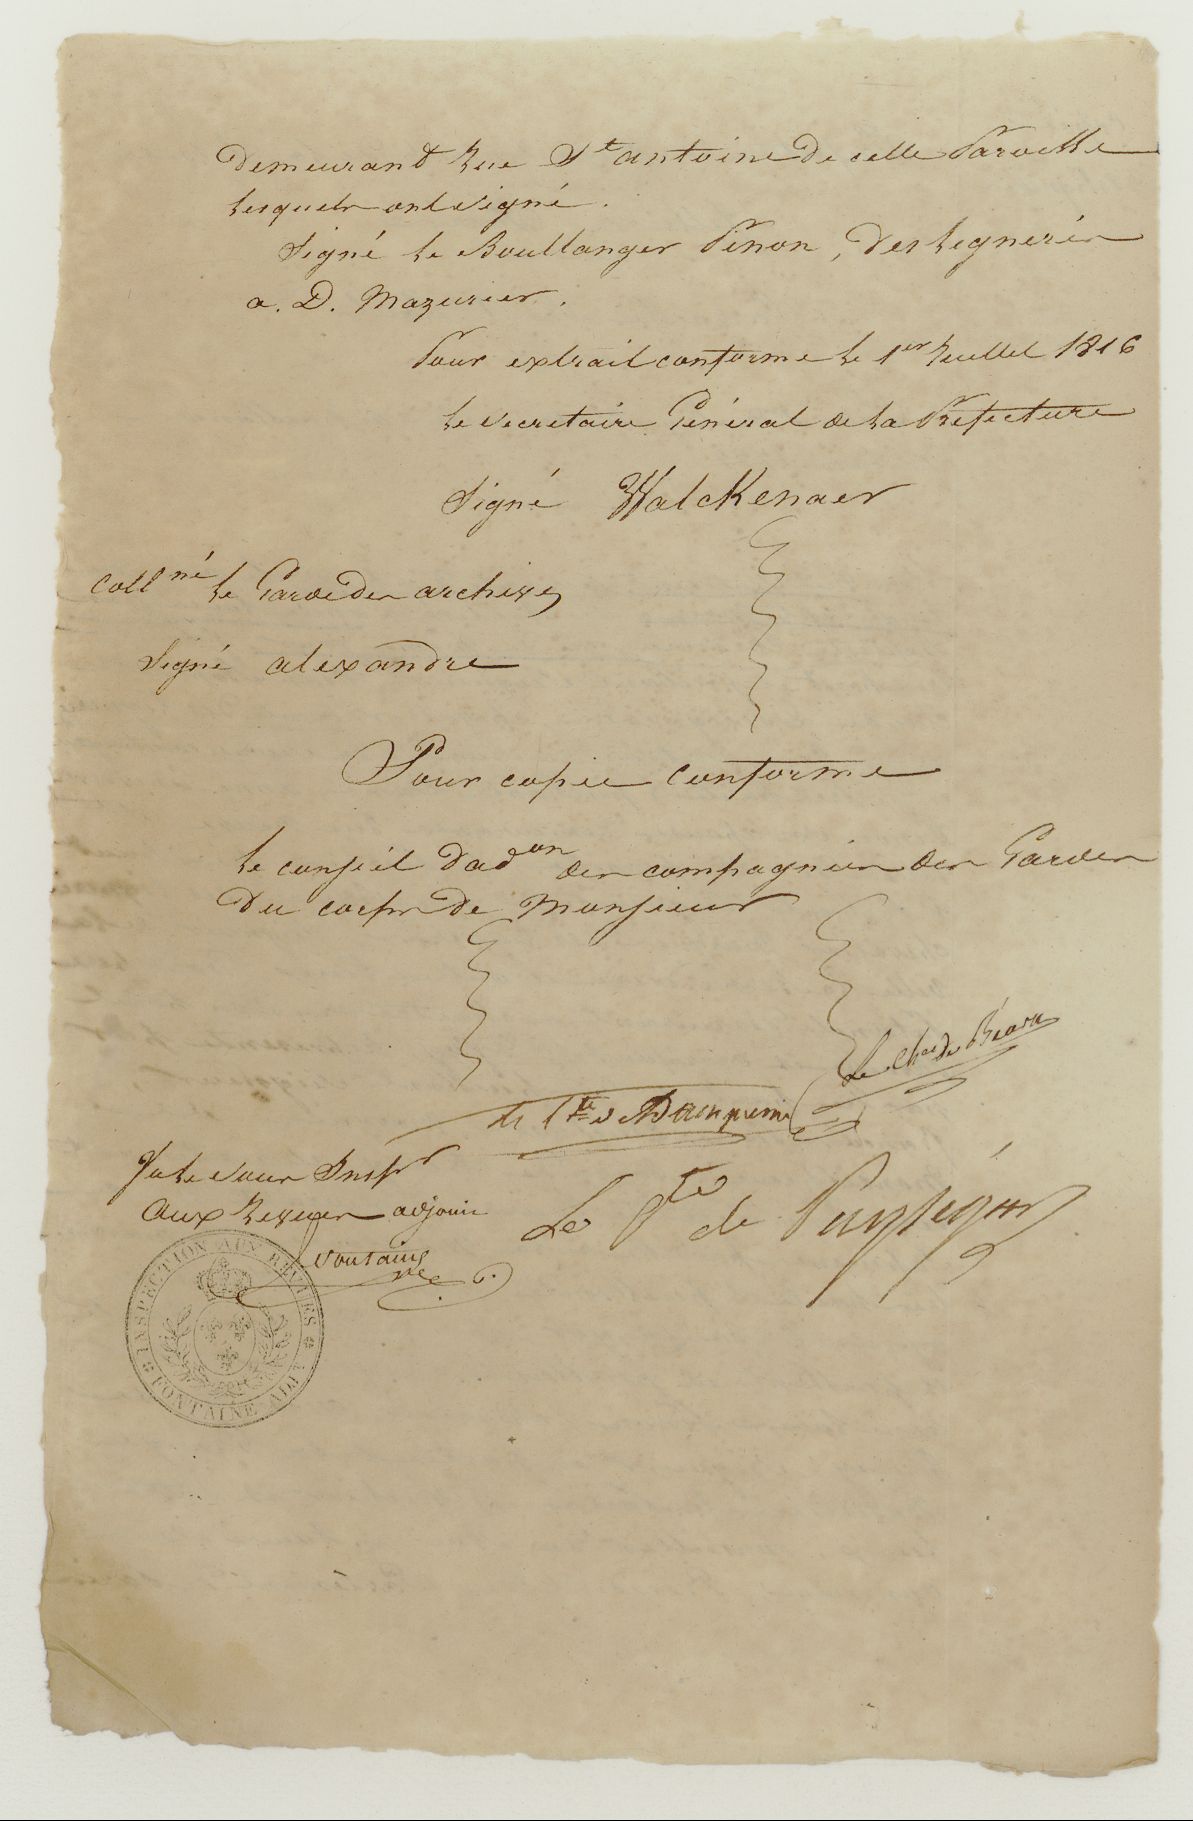 Demeurant Rue St antoine De cette Paroisse
lesquels ont signé.
Signé le Boullanger Pinon, Des lignerie
a. D. Mazurier.
Pour extrait conforme le 1er Juillet 1816
le Secretaire Général de la Préfecture
Signé Walckenaer
Collné le Garde des archives
Signé alexandre
Pour copie conforme
le conseil Dadon des compagnies des Gardes
Du corps De Monsieur
le Cher de Béarn
le Cte de Dampierre
Vu le Sous Inspr
Aux Revues adjoint
Le Cte de Puységur
INSPECTION AUX REVUES
FONTAINE ADJT